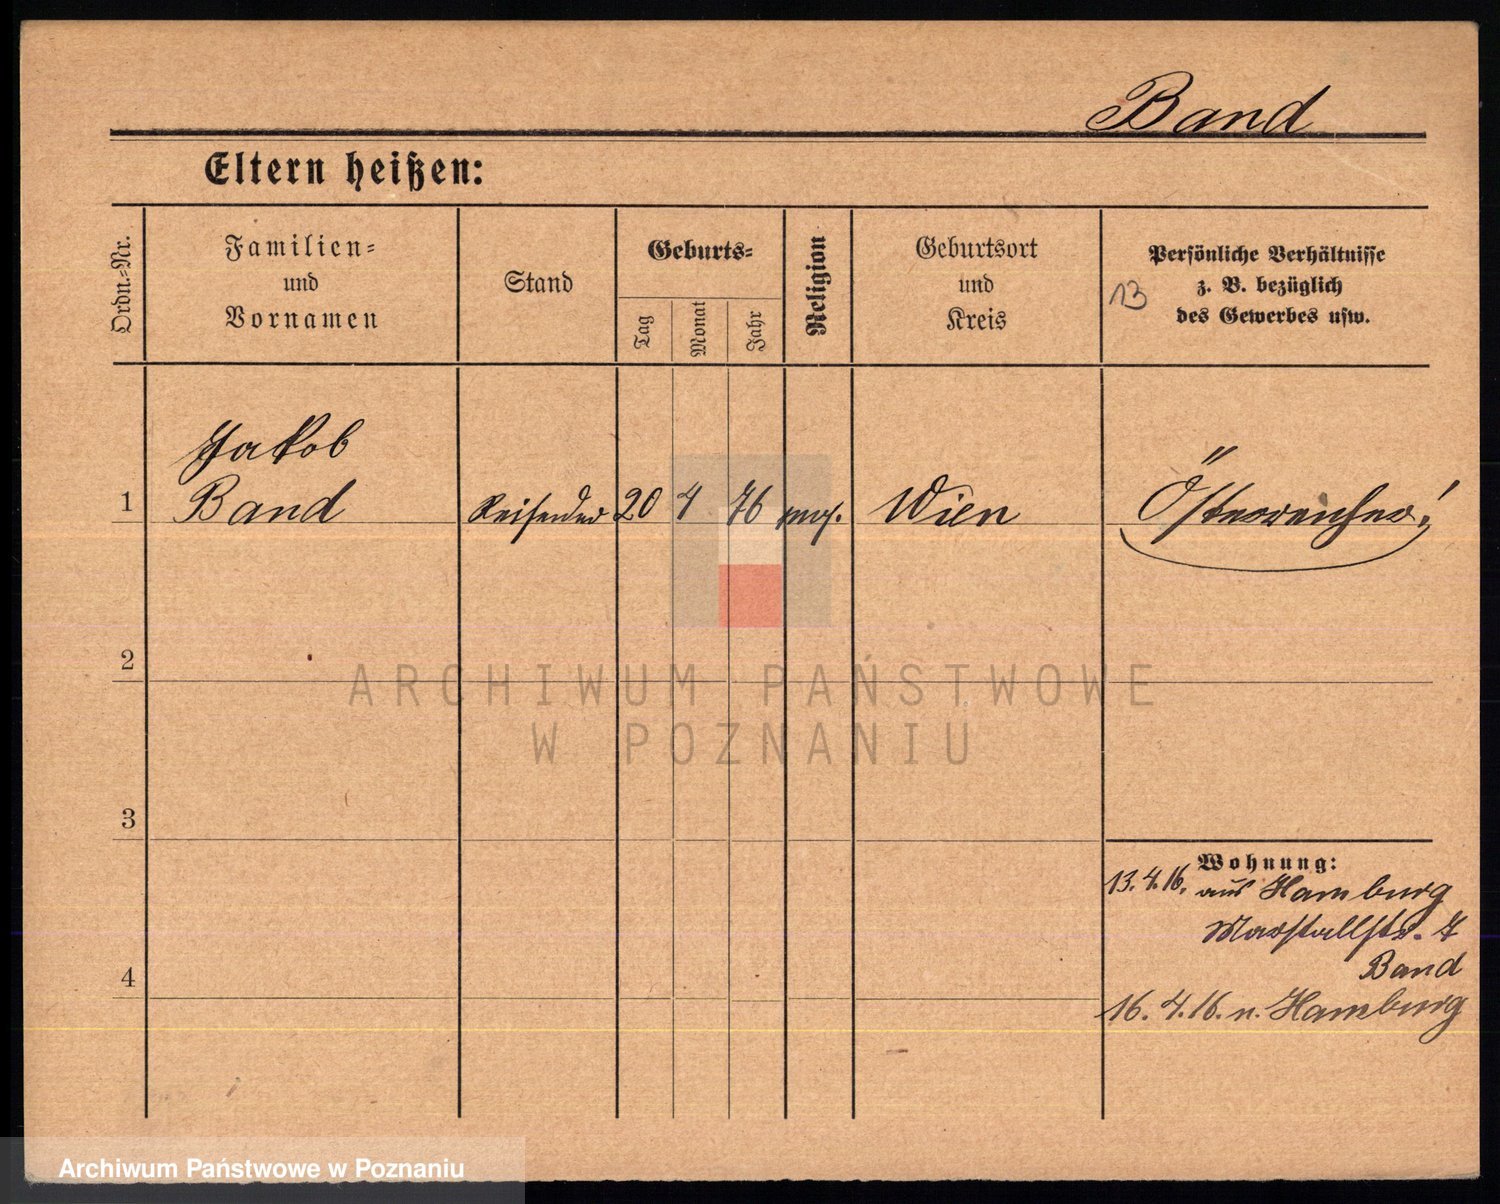 Band
Eltern heißen:
Ordn.-Nr.
Familien-
und
Vornamen
Stand
Geburts-
Tag
Monat
Jahr
Religion
Geburtsort
und
Kreis
Persönliche Verhältnisse
z. B. bezüglich
des Gewerbes usw.
13
Jakob
1 Band Reisender 20 4 76 mos. Wien Österreicher!
2
3
4
Wohnung:
13.4.16. aus Hamburg
Marstallstr. 7
Band
16.4.16. n. Hamburg
ARCHIWUM PAŃSTWOWE
W POZNANIU
Archiwum Państwowe w Poznaniu